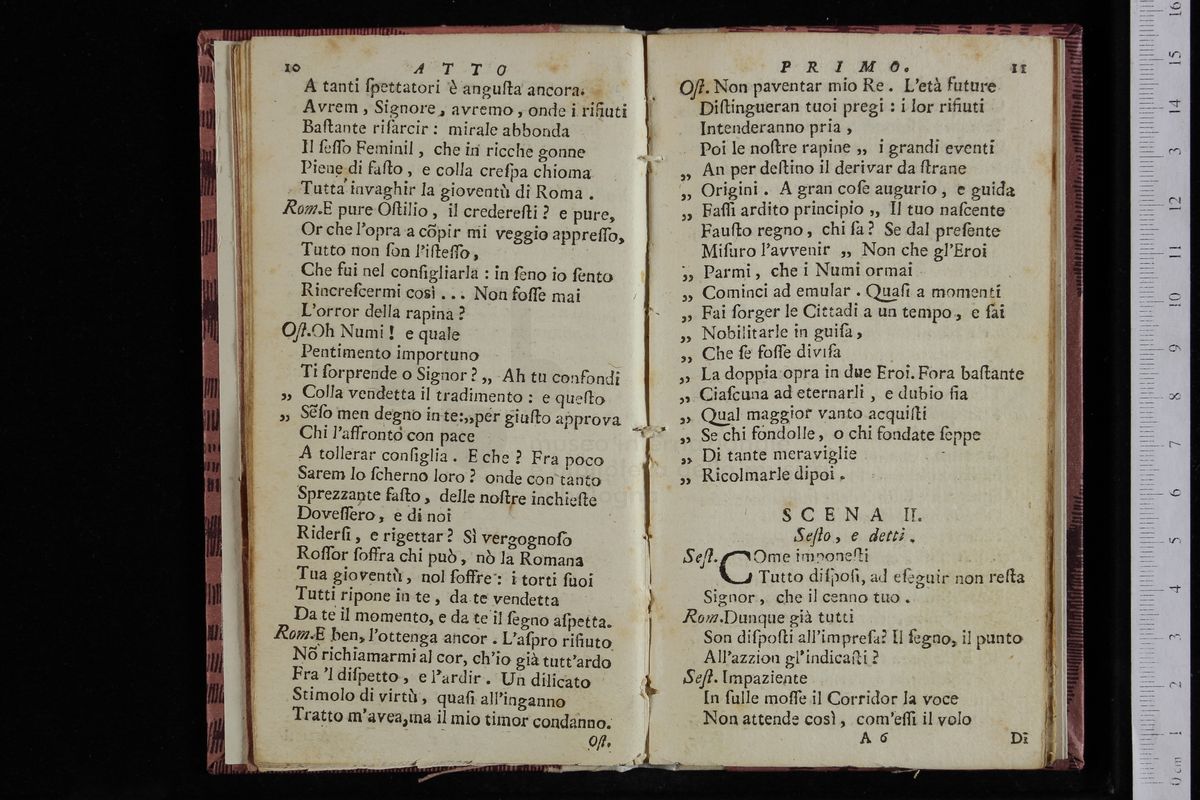 10 ATTO
A tanti ſpettatori è anguſta ancora.
Avrem, Signore, avremo, onde i rifiuti
Baſtante riſarcir: mirale abbonda
Il ſeſſo Feminil, che in ricche gonne
Piene di faſto, e colla creſpa chioma
Tutta invaghir la gioventù di Roma.
Rom. E pure Oſtilio, il crederesti? e pure,
Or che l'opra a cõpir mi veggio appreſſo,
Tutto non ſon l'iſteſſo,
Che fui nel conſigliarla: in ſeno io ſento
Rincreſcermi così... Non foſſe mai
L'orror della rapina?
Oſt. Oh Numi! e quale
Pentimento importuno
Ti ſorprende o Signor? „ Ah tu confondi
„ Colla vendetta il tradimento: e queſto
„ Sẽſo men degno in te: „ per giuſto approva
Chi l'affrontò con pace
A tollerar conſiglia. E che? Fra poco
Sarem lo ſcherno loro? onde con tanto
Sprezzante faſto, delle noſtre inchieſte
Doveſſero, e di noi
Riderſi, e rigettar? Sì vergognoſo
Roſſor ſoffra chi può, nò la Romana
Tua gioventù, nol ſoffre: i torti ſuoi
Tutti ripone in te, da te vendetta
Da te il momento, e da te il ſegno aſpetta.
Rom. E ben, l'ottenga ancor. L'aſpro rifiuto
Nõ richiamarmi al cor, ch'io già tutt'ardo
Fra 'l diſpetto, e l'ardir. Un dilicato
Stimolo di virtù, quaſi all'inganno
Tratto m'avea, ma il mio timor condanno.
Oſt.
PRIMO. 11
Oſt. Non paventar mio Re. L'età future
Diſtingueran tuoi pregi: i lor rifiuti
Intenderanno pria,
Poi le noſtre rapine „ i grandi eventi
„ An per deſtino il derivar da ſtrane
„ Origini. A gran coſe augurio, e guida
„ Faſſi ardito principio „ Il tuo naſcente
Fauſto regno, chi ſa? Se dal preſente
Miſuro l'avvenir „ Non che gl'Eroi
„ Parmi, che i Numi ormai
„ Cominci ad emular. Quaſi a momenti
„ Fai ſorger le Cittadi a un tempo, e ſai
„ Nobilitarle in guiſa,
„ Che ſe foſſe diviſa
„ La doppia opra in due Eroi. Fora baſtante
„ Ciaſcuna ad eternarli, e dubio fia
„ Qual maggior vanto acquiſti
„ Se chi fondolle, o chi fondate ſeppe
„ Di tante meraviglie
„ Ricolmarle dipoi.
SCENA II.
Seſto, e detti.
Seſt. COme imponeſti
Tutto diſpoſi, ad eſeguir non reſta
Signor, che il cenno tuo.
Rom. Dunque già tutti
Son diſpoſti all'impreſa? Il ſegno, il punto
All'azzion gl'indicaſti?
Seſt. Impaziente
In ſulle moſſe il Corridor la voce
Non attende così, com'eſſi il volo
A 6 Di